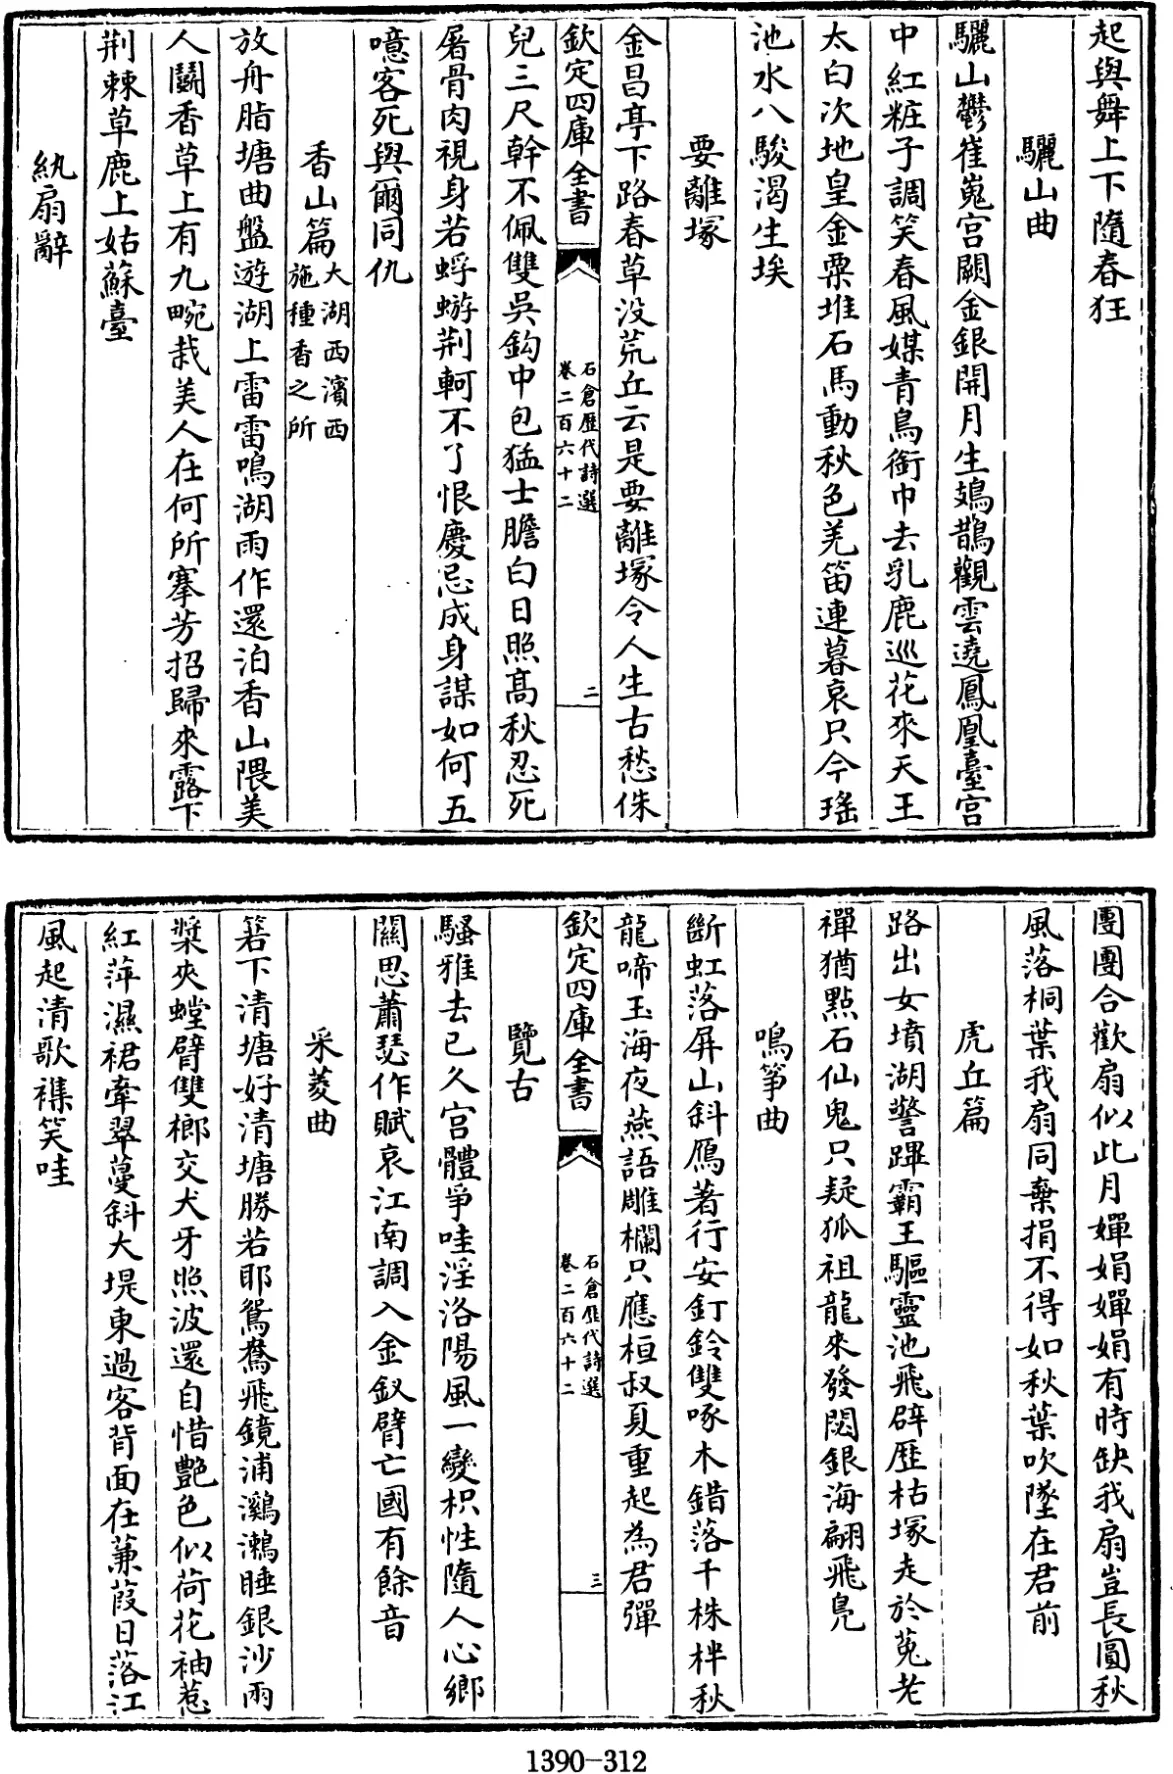 起與舞上下隨春狂
驪山曲
驪山鬱崔嵬宮闕金銀開月生鳷鵲觀雲遶鳳凰臺宮
中紅粧子調笑春風媒青鳥銜巾去乳鹿巡花來天王
太白次地皇金粟堆石馬動秋色羌笛連暮哀只今瑤
池水八駿渴生埃
要離塚
金昌亭下路春草没荒丘云是要離塚令人生古愁侏
欽定四庫全書
石倉歷代詩選
卷二百六十二
二
兒三尺幹不佩雙吳鈎中包猛士膽白日照高秋忍死
屠骨肉視身若蜉蝣荆軻不了恨慶忌成身謀如何五
噫客死與爾同仇
香山篇
大湖西濱西
施種香之所
放舟脂塘曲盤遊湖上雷雷鳴湖雨作還泊香山隈美
人鬭香草上有九畹栽美人在何所搴芳招歸來露下
荆棘草鹿上姑蘇臺
紈扇辭
團團合歡扇似此月嬋娟嬋娟有時缺我扇豈長圓秋
風落桐葉我扇同棄捐不得如秋葉吹墜在君前
虎丘篇
路出女墳湖警蹕霸王驅靈池飛辟歷枯塚走於菟老
禪猶點石仙鬼只疑狐祖龍來發閟銀海翩飛鳬
鳴箏曲
斷虹落屏山斜鴈著行安釘鈴雙啄木錯落千株柈秋
龍啼玉海夜燕語雕欄只應桓叔夏重起為君彈
欽定四庫全書
石倉歷代詩選
卷二百六十二
三
覽古
騷雅去已久宮體爭哇淫洛陽風一變枳性隨人心鄉
關思蕭瑟作賦哀江南調入金釵臂亡國有餘音
采菱曲
箬下清塘好清塘勝若耶鴛鴦飛鏡浦鸂鶒睡銀沙雨
槳夾螳臂雙榔交犬牙照波還自惜艷色似荷花袖惹
紅萍濕裙牽翠蔓斜大堤東過客背面在蒹葭日落江
風起清歌襍笑哇
1390-312